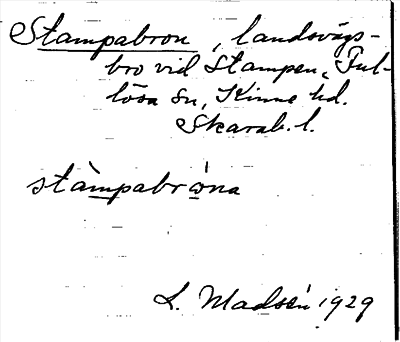 Stampabron, landsvägs-
bro vid Stampen, Ful-
lösa sn, Kinne hd.
Skarab. l.
stàmpabrωna
L. Madsén 1929